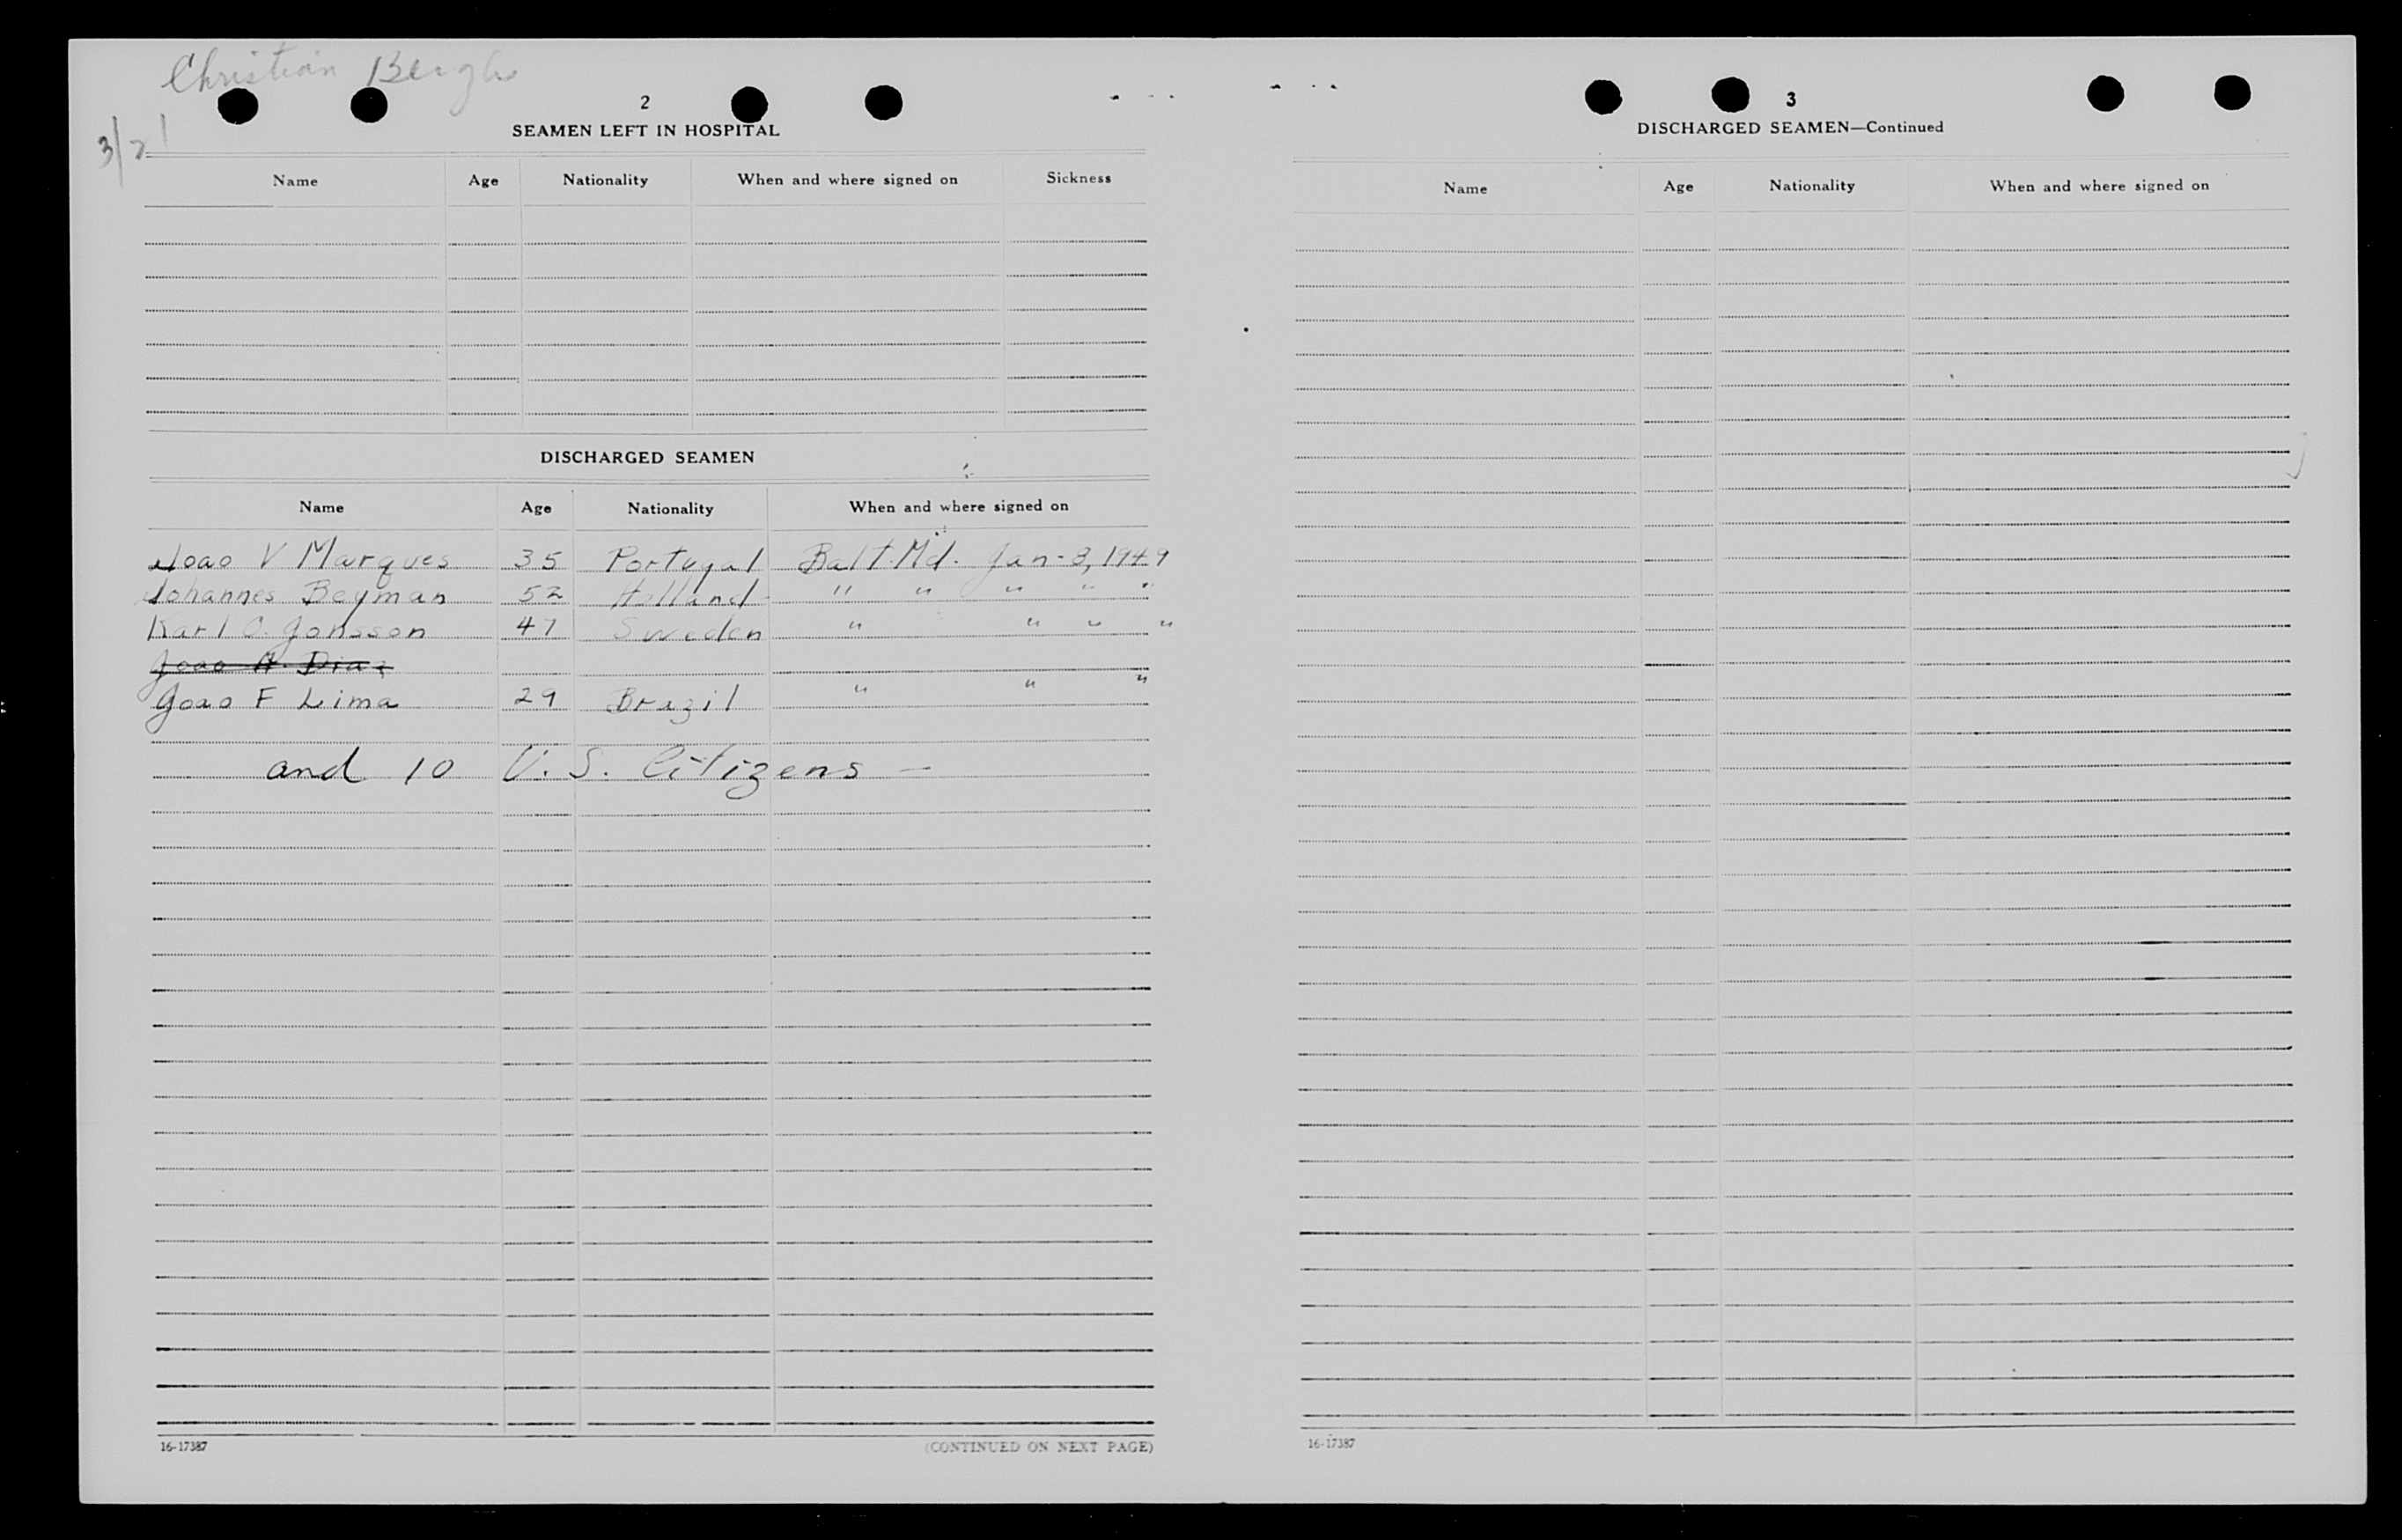 Christian Bergh
3/21
2
SEAMEN LEFT IN HOSPITAL
Name Age Nationality When and where signed on Sickness
DISCHARGED SEAMEN
Name Age Nationality When and where signed on
Joao V Marques 35 Portugal Balt. Md. Jan-3, 1949
Johannes Beyman 52 Holland " " " " "
Karl C. Jonsson 47 Sweden " " " "
Joao A. Diaz
Joao F Lima 29 Brazil " " "
and 10 U.S. Citizens —
16-17387 (CONTINUED ON NEXT PAGE)
3
DISCHARGED SEAMEN—Continued
Name Age Nationality When and where signed on
16-17387